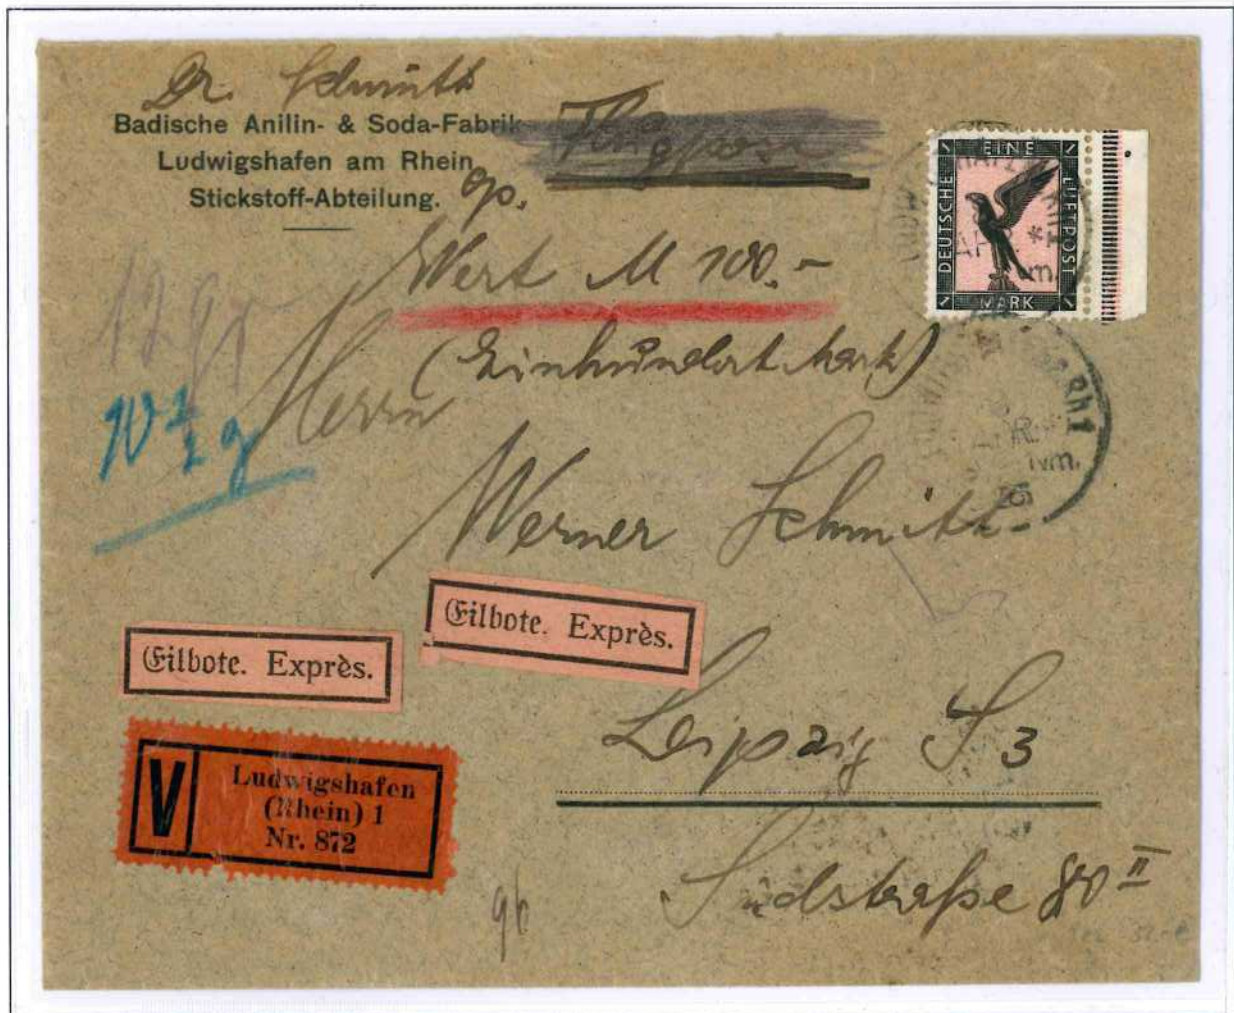 Dr. Schmitt
Badische Anilin- & Soda-Fabrik
Ludwigshafen am Rhein
Stickstoff-Abteilung.
Flugpost
EINE
DEUTSCHE
LUFTPOST
1 MARK 1
Wert M 100.-
(Einhundert Mark)
12 gr
10 1/2 g
Herrn
Werner Schmitt
Eilbote. Exprès.
Eilbote. Exprès.
V
Ludwigshafen
(Rhein) 1
Nr. 872
Leipzig S 3
Südstraße 80 II